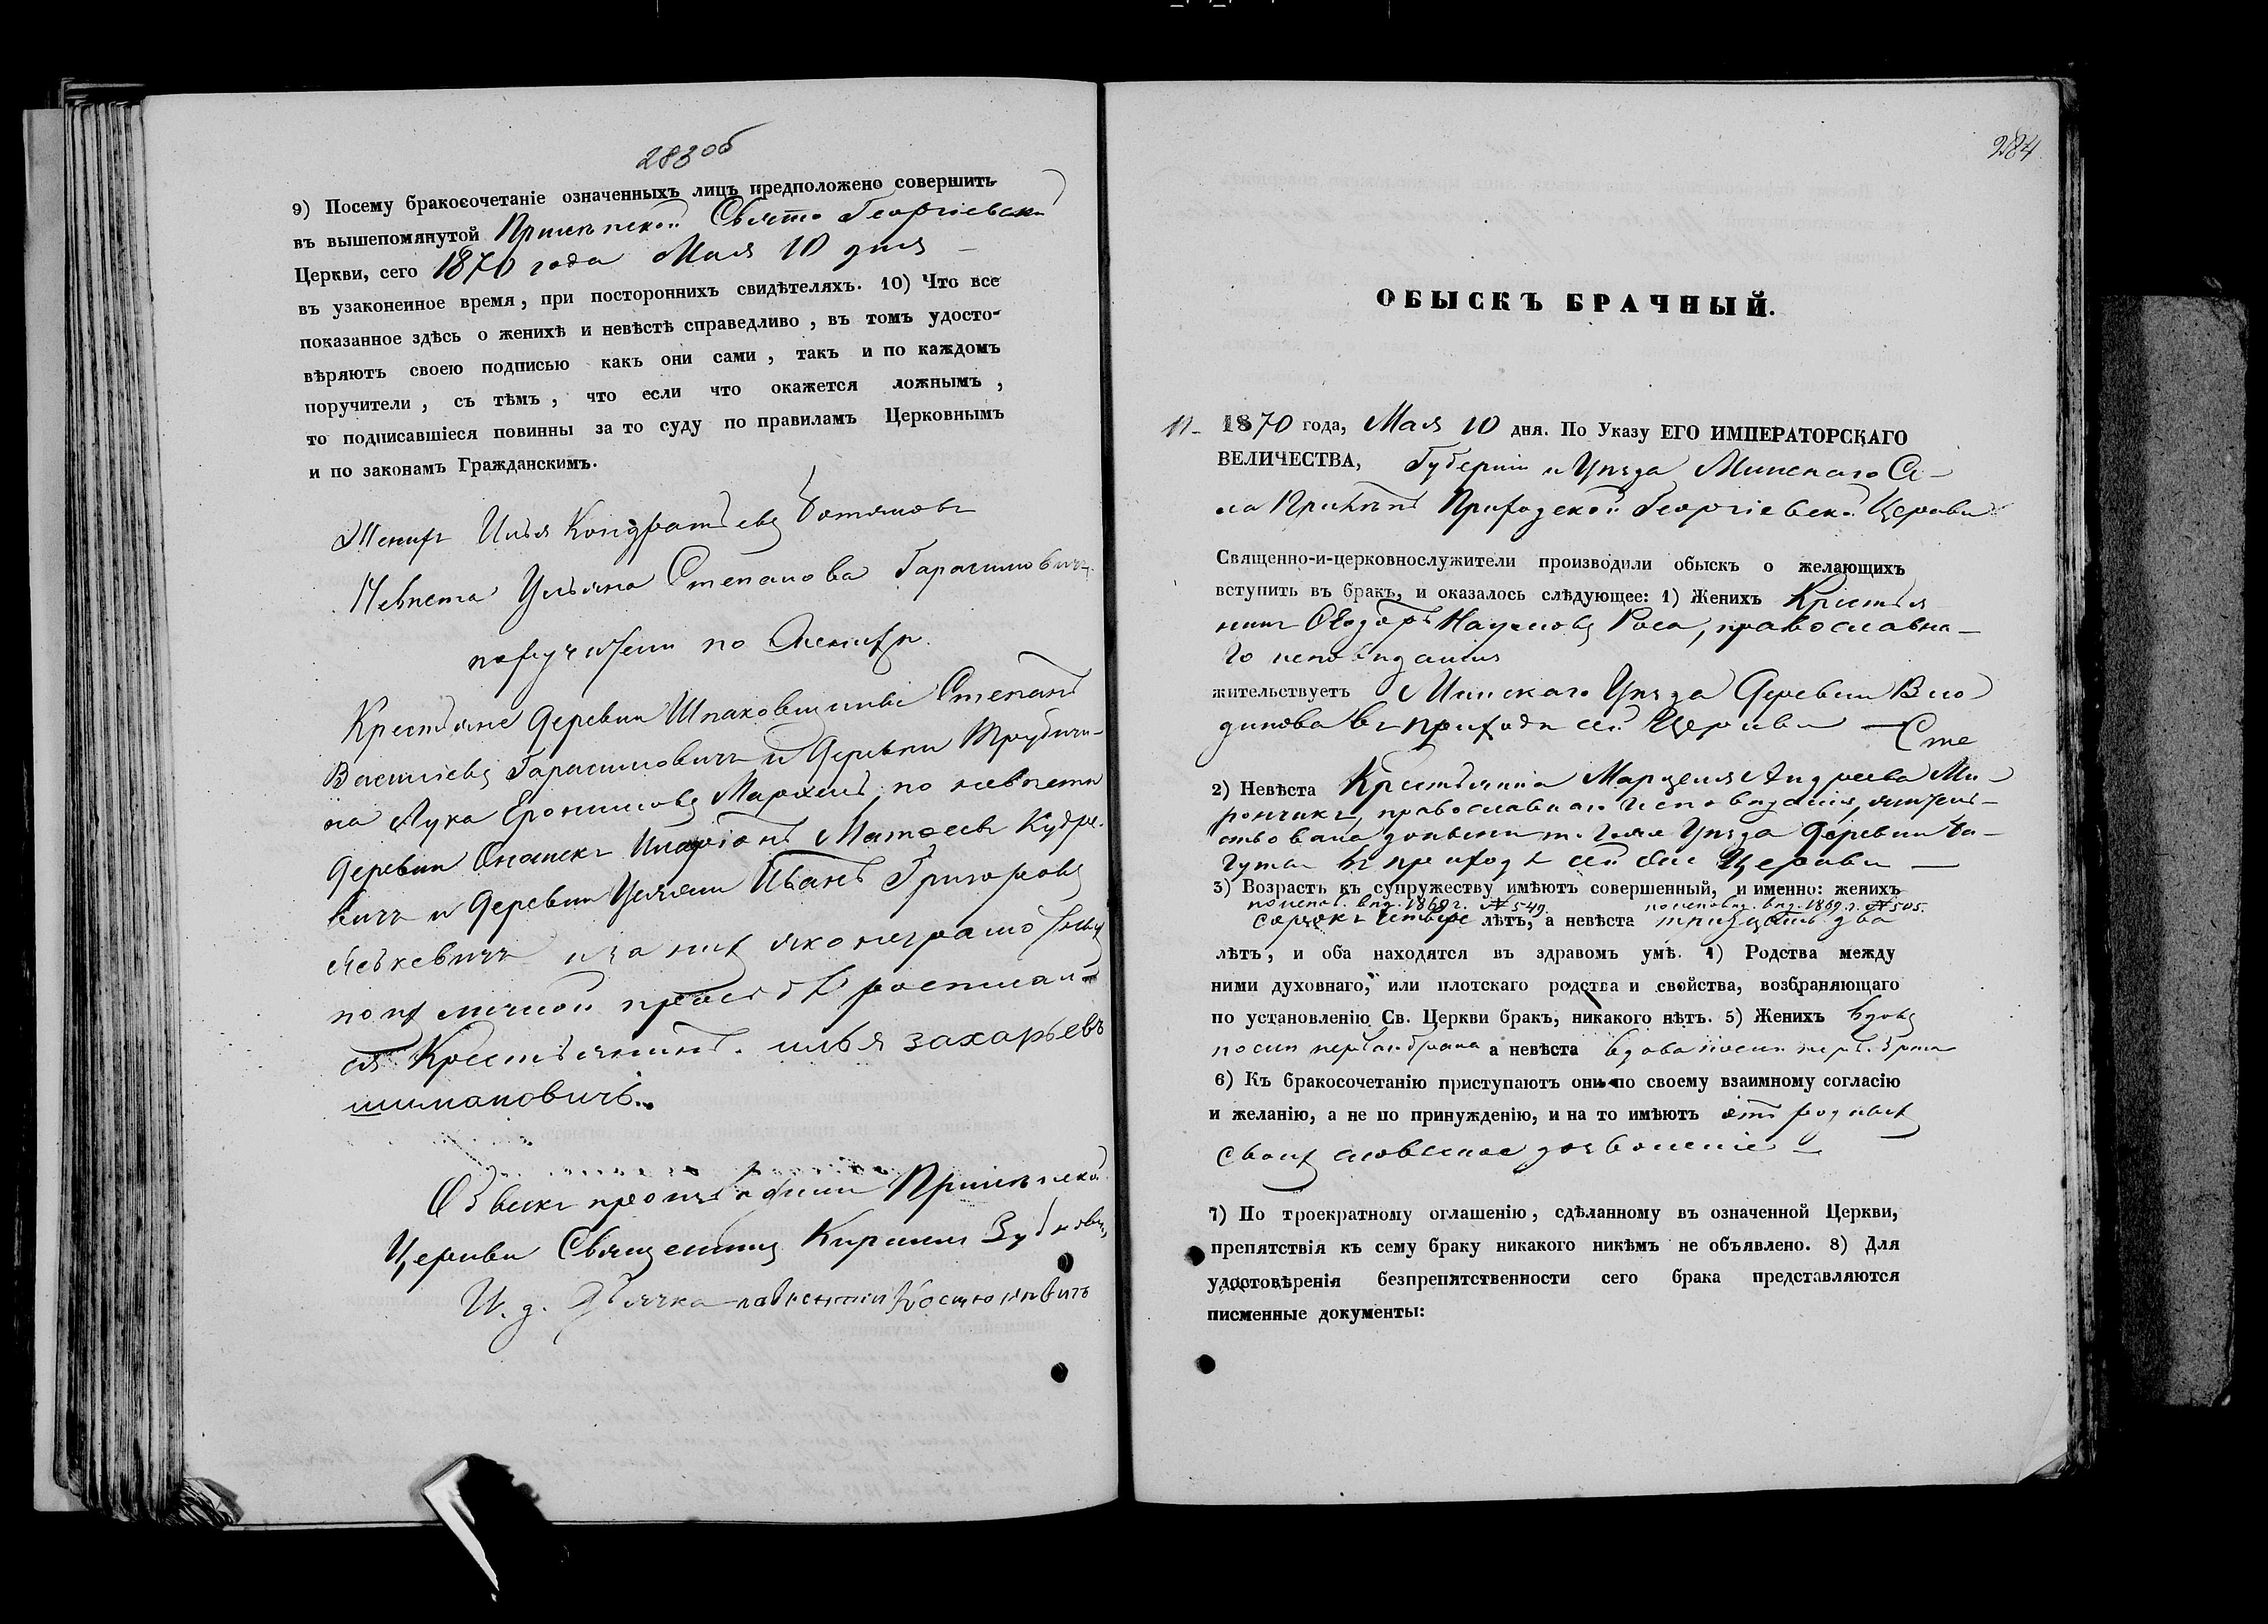 283об
9) Посему бракосочетаніе означенныхъ лицъ предположено совершить
въ вышепомянутой Прилѣпской Свято Георгіевской
Церкви, сего 1870 года Мая 10 дня
въ узаконенное время, при постороннихъ свидѣтеляхъ. 10) Что все
показанное здѣсь о женихѣ и невѣстѣ справедливо, въ томъ удосто-
вѣряютъ своею подписью какъ они сами, такъ и по каждомъ
поручители, съ тѣмъ, что если что окажется ложнымъ,
то подписавшіеся повинны за то суду по правиламъ Церковнымъ
и по законамъ Гражданскимъ.
Женихъ Илья Кондратьевъ
Невѣста Ульяна Степанова Гарасимовичъ
поручители по Женихѣ
Крестьяне Деревни Шпаковщины Степанъ
Васильевъ Гарасимовичъ и Деревни
Лука Еронимовъ по невѣстѣ
Деревни Иларіонъ Матѳеевъ
вичъ и Деревни Иванъ Григорьевъ
а за нихъ яко неграмотныхъ
по ихъ личной просьбѣ росписал-
ся Крестьянинъ. илья захарьевъ
шимановичъ.
Обыскъ производили Прилѣпской
Церкви Священникъ Кирилл
И. д. Дьячка
284
11- 1870 года, Мая 10 дня. По Указу ЕГО ИМПЕРАТОРСКАГО
ВЕЛИЧЕСТВА, Губерніи и Уѣзда Минскаго Се-
ла Прилѣпъ Приходской Георгіевской Церкви
Священно-и-церковнослужители производили обыскъ о желающихъ
вступить въ бракъ, и оказалось слѣдующее: 1) Женихъ Крестья
нинъ Ѳеодоръ Наумовъ Роса, православна-
го исповѣданія
жительствуетъ Минскаго Уѣзда Деревни
въ приходѣ сей Церкви
2) Невѣста Крестьянка Марцеля Андреева Ми-
рончикъ, православнаго исповѣданія, жительс-
твовала доныне того же Уѣзда Деревни
въ приходѣ сей же Церкви
3) Возрастъ къ супружеству имѣютъ совершенный, и именно: женихъ
по испов. вѣд. 1869 г. № 549. по исповѣд. вѣд. 1869 г. № 505.
сорокъ четыре лѣтъ, а невѣста тридцать два
лѣтъ, и оба находятся въ здравомъ умѣ. 4) Родства между
ними духовнаго, или плотскаго родства и свойства, возбраняющаго
по установленію Св. Церкви бракъ, никакого нѣтъ. 5) Женихъ вдовъ
послѣ перваго брака а невѣста вдова послѣ перв. брака
6) Къ бракосочетанію приступаютъ они по своему взаимному согласію
и желанію, а не по принужденію, и на то имѣютъ отъ родныхъ
своихъ словесное дозволеніе
7) По троекратному оглашенію, сдѣланному въ означенной Церкви,
препятствія къ сему браку никакого никѣмъ не объявлено. 8) Для
удостовѣренія безпрепятственности сего брака представляются
писменные документы: